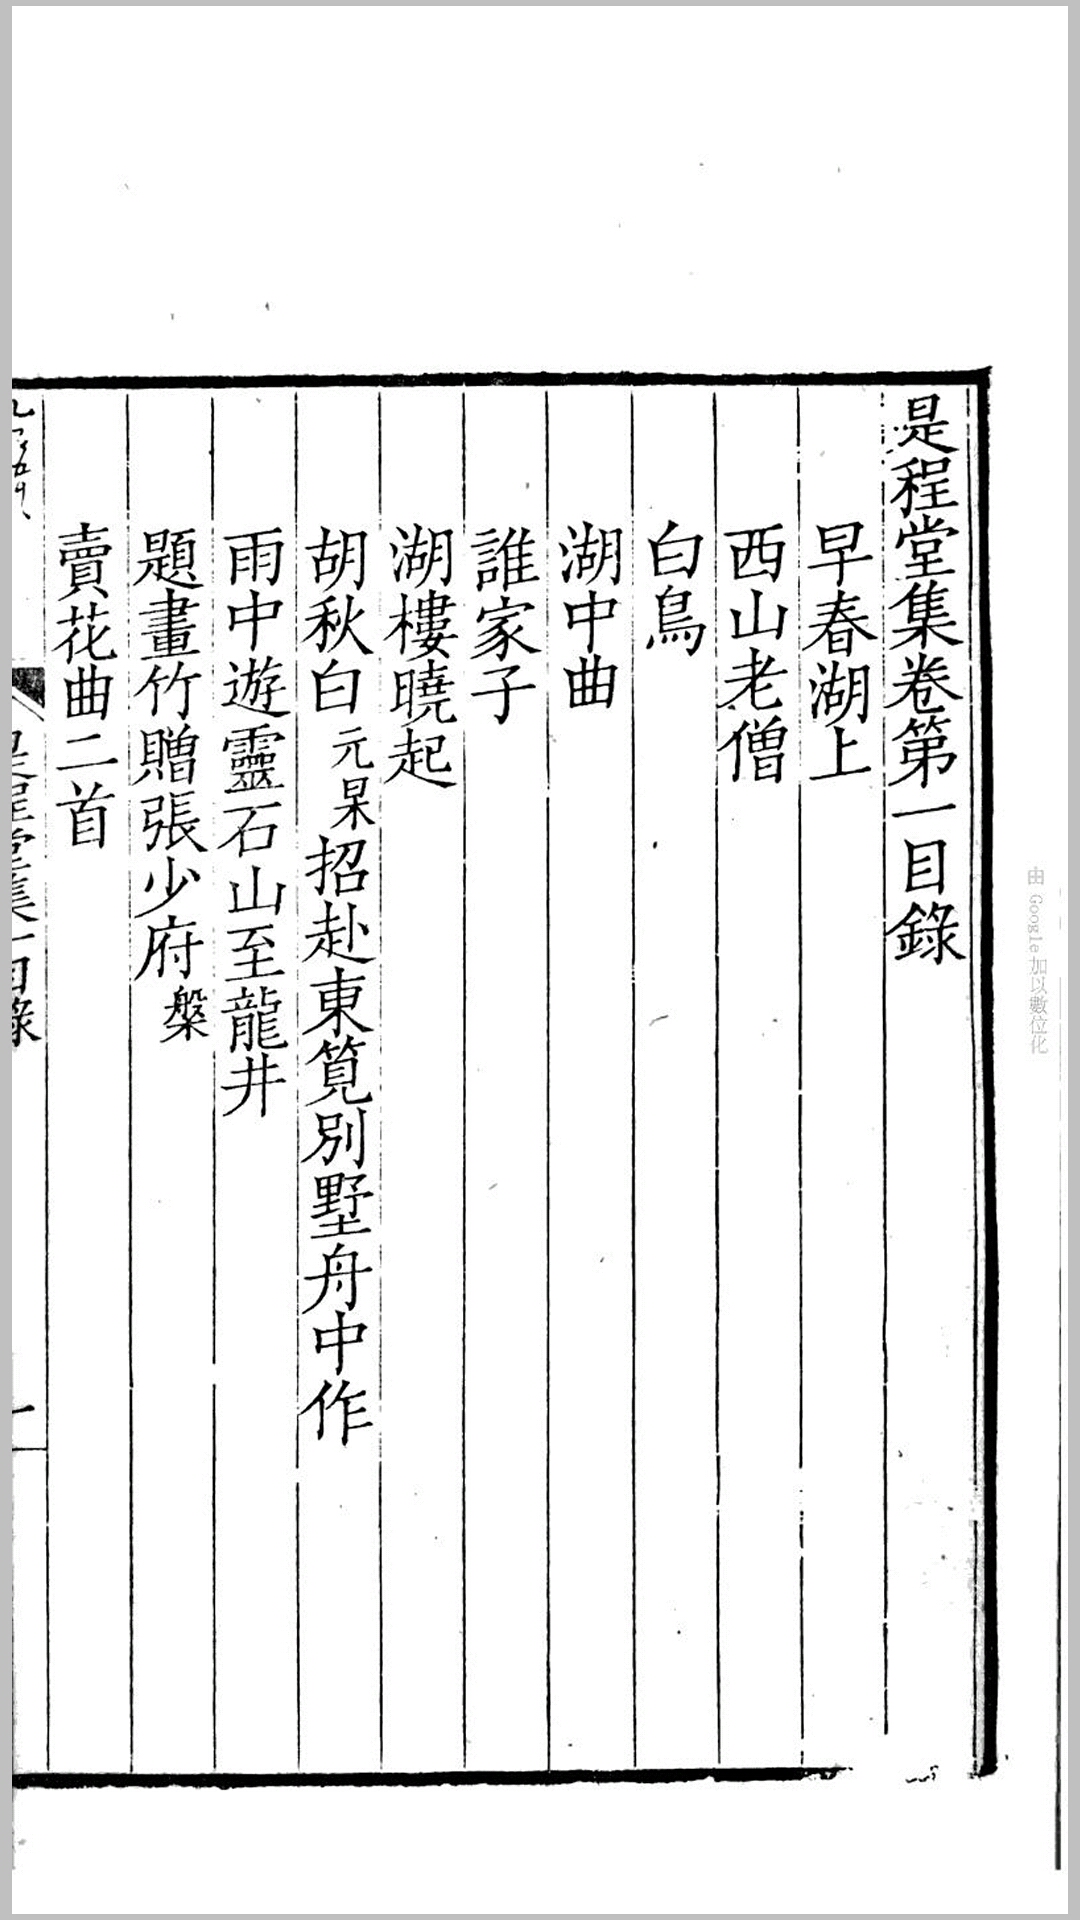 是程堂集卷第一目錄
早春湖上
西山老僧
白鳥
湖中曲
誰家子
湖樓曉起
胡秋白元杲招赴東筧別墅舟中作
雨中遊靈石山至龍井
題畫竹贈張少府槃
賣花曲二首
是程堂集一目錄
一
由 Google 加以數位化